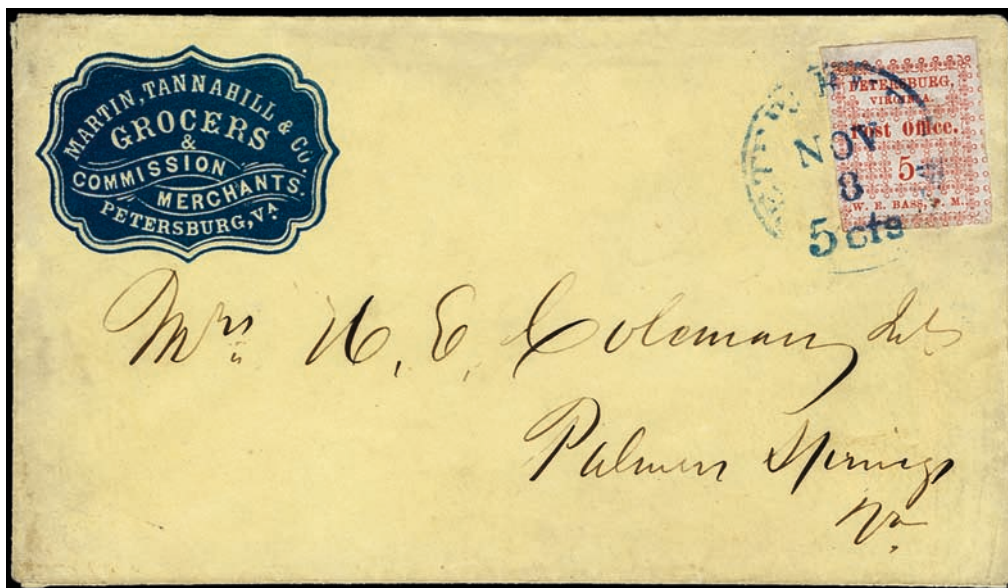 MARTIN, TANNAHILL & CO.
GROCERS
&
COMMISSION
MERCHANTS.
PETERSBURG, VA
PETERSBURG,
VIRGINIA
Post Office.
5
W. E. BASS, P. M.
NOV
8
5 cts
Mrs H. E. Coleman
Palmer Springs
Va.